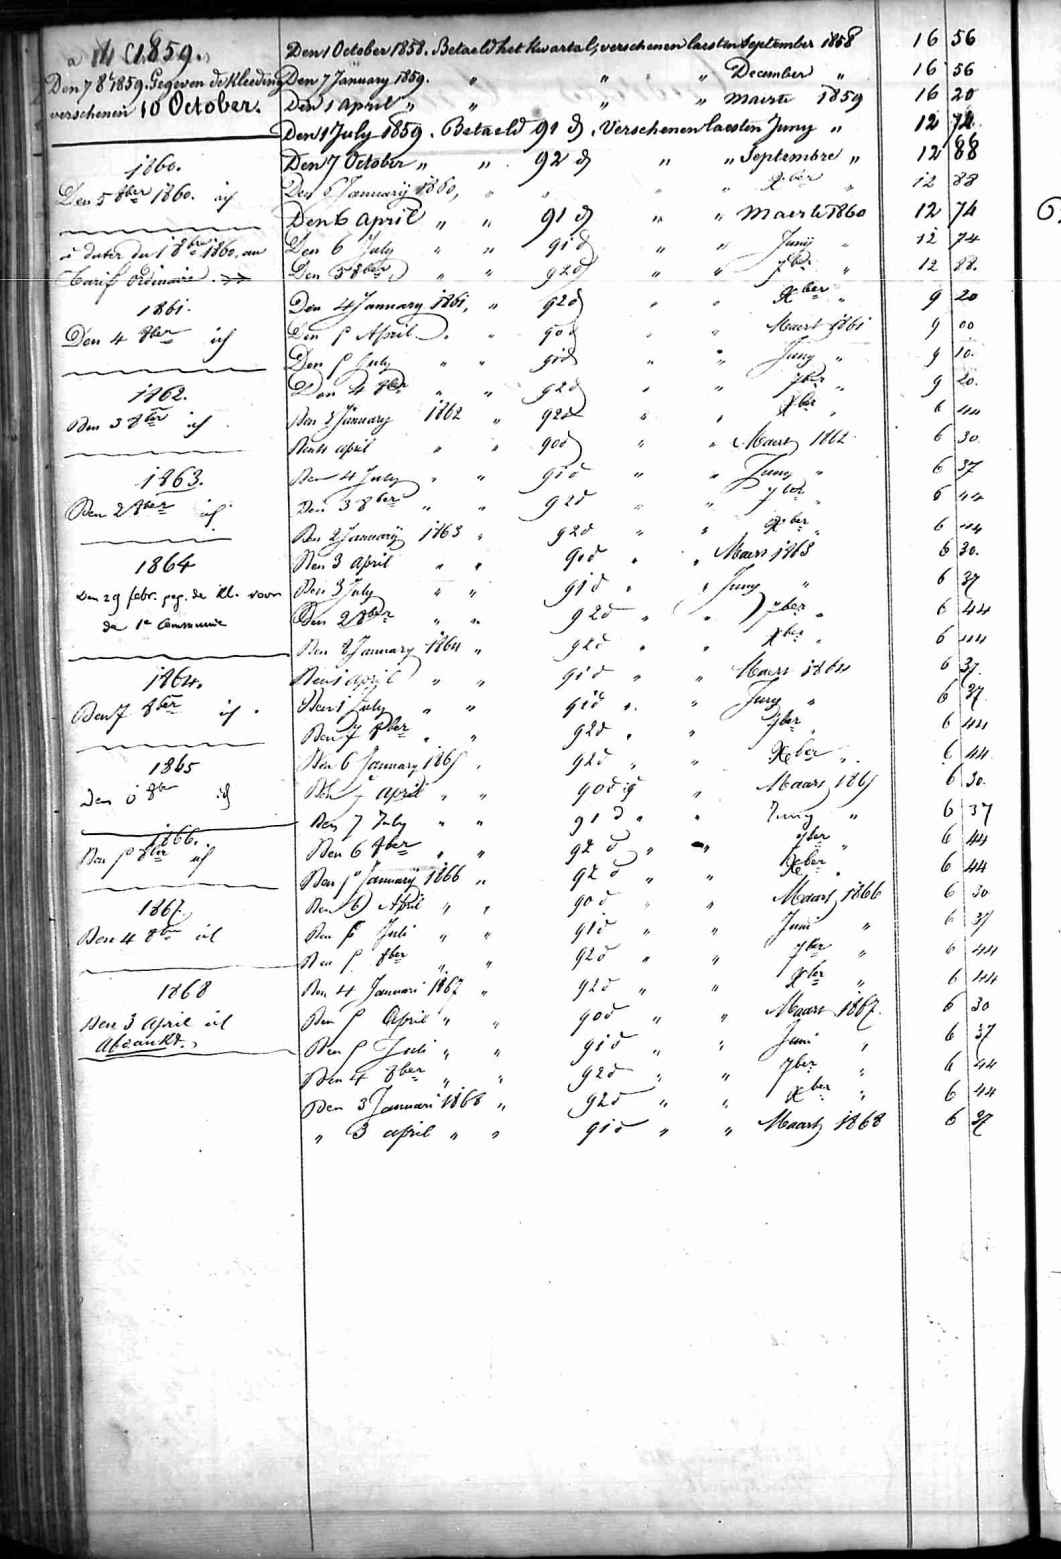 a 14 C. 1859.
Den 7 8r 1859. Gegeven de Kleeding
verschenen 10 October.
1860.
Den 5 8ber 1860. id
à dater du 1 8bre 1860. au
tarif ordinaire.
1861.
Den 4 8ber id
1862.
Den 3 8ber id
1863.
Den 2 8ber id
1864
Den 29 febr. geg. de kl. voor
de 1e Communie
1864.
Den 7 8ber id.
1865
Den 6 8ber id
1866.
Den 5 8ber id
1867
Den 4 8ber id
1868
Den 3 April id
Afdankt.
Den 1 October 1858. Betaeld het kwartal, verschenen laesten September 1858 16 56
Den 7 January 1859. " " " December " 16 56
Den 1 April " " " " Maerte 1859 16 20
Den 1 July 1859. Betaeld 91 d, Verschenen laesten Juny " 12 74
Den 7 October " " 92 d " " Septembre " 12 88
Den 6 January 1860, " " " " Xber " 12 88
Den 6 April " " 91 d " " Maerte 1860 12 74
Den 6 July " " 91 d " " Juny " 12 74
Den 5 8ber " " 92 d " " 7ber " 12 88.
Den 4 January 1861, " 92 d " " Xber " 9 20
Den 5 April " " 90 d " " Maert 1861 9 00
Den 5 July " " 91 d " " Juny " 9 10.
Den 4 8ber " " 92 d " " 7ber " 9 20.
Den 2 January 1862 " 92 d " " Xber " 6 44
Den 4 april " " 90 d " " Maert 1862 6 30
Den 4 July " " 91 d " " Juny " 6 37
Den 3 8ber " " 92 d " " 7ber " 6 44
Den 2 January 1863 " 92 d " " Xber " 6 44
Den 3 april " " 90 d " " Maers 1863 6 30.
Den 3 July " " 91 d " " Juny " 6 37
Den 2 8ber " " 92 d " " 7ber " 6 44
Den 2 January 1864 " 92 d " " Xber " 6 44
Den 1 april " " 91 d " " Maers 1864 6 37.
Den 1 July " " 91 d " " Juny " 6 37.
Den 7 8ber " " 92 d " " 7ber " 6 44
Den 6 January 1865 " 92 d " " Xber " 6 44
Den 7 april " " 90 d " Maars 1865 6 30.
Den 7 July " " 91 d " " Juny " 6 37
Den 6 8ber " " 92 d " " 7ber " 6 44
Den 5 January 1866 " 92 d " " Xber " 6 44
Den 6 April " " 90 d " " Maart 1866 6 30
Den 6 Juli " " 91 d " " Juni " 6 37
Den 5 8ber " " 92 d " " 7ber " 6 44
Den 4 Januari 1867 " 92 d " " Xber " 6 44
Den 5 April " " 90 d " " Maart 1867. 6 30
Den 5 Juli " " 91 d " " Juni " 6 37
Den 4 8ber " " 92 d " " 7ber " 6 44
Den 3 Januari 1868 " 92 d " " Xber " 6 44
" 3 april " " 91 d " " Maart 1868 6 37